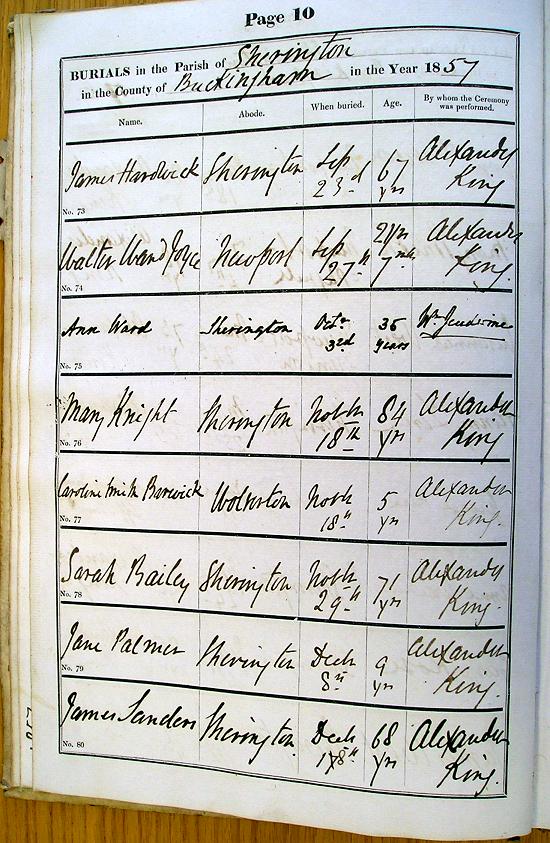 Page 10
BURIALS in the Parish of Sherington
in the County of Buckingham in the Year 1857
Name. Abode. When buried. Age. By whom the Ceremony was performed.
James Hardwick Sherington Sep 23d 67 yrs Alexander King
No. 73
Walter Ward Joyce Newport Sep 27th 2yrs 7mths Alexander King.
No. 74
Ann Ward Sherington Octr 3rd 36 years Wm Jeudwine
No. 75
Mary Knight Sherington Novbr 18th 84 yrs Alexander King
No. 76
Caroline Smith Barwick Wolverton Novbr 18th 5 yrs Alexander King.
No. 77
Sarah Bailey Sherington Novbr 29th 71 yrs Alexander King.
No. 78
Jane Palmer Sherington Decbr 8th 9 yrs Alexander King.
No. 79
James Sanders Sherington. Decbr 68 yrs Alexander King.
No. 80